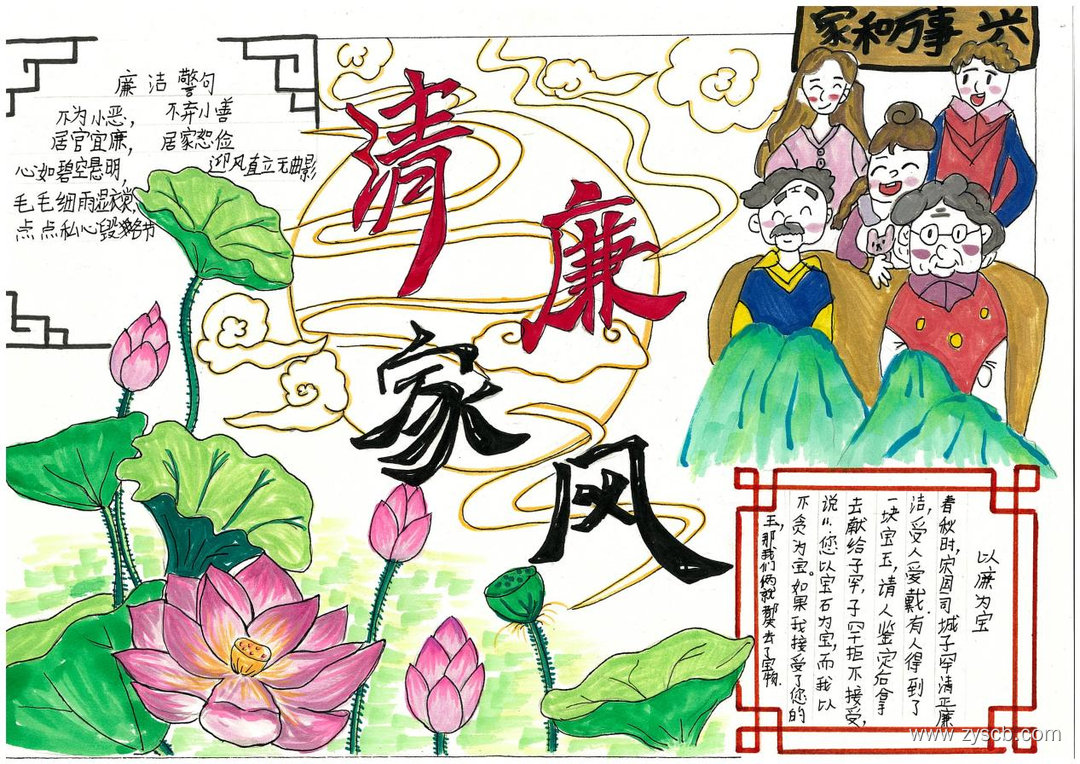 家和万事兴
廉洁警句
不为小恶， 不弃小善
居官宜廉， 居家恕俭
心如碧空悬明， 迎风直立无曲影
毛毛细雨湿衣裳，
点点私心毁名节
清廉
家风
以廉为宝
春秋时，宋国司城子罕清正廉
洁，受人爱戴.有人得到了
一块宝玉，请人鉴定后拿
去献给子罕，子罕拒不接受，
说:"您以宝石为宝，而我以
不贪为宝。如果我接受了您的
玉，那我们俩就都失去了宝物.
www.zyscb.com